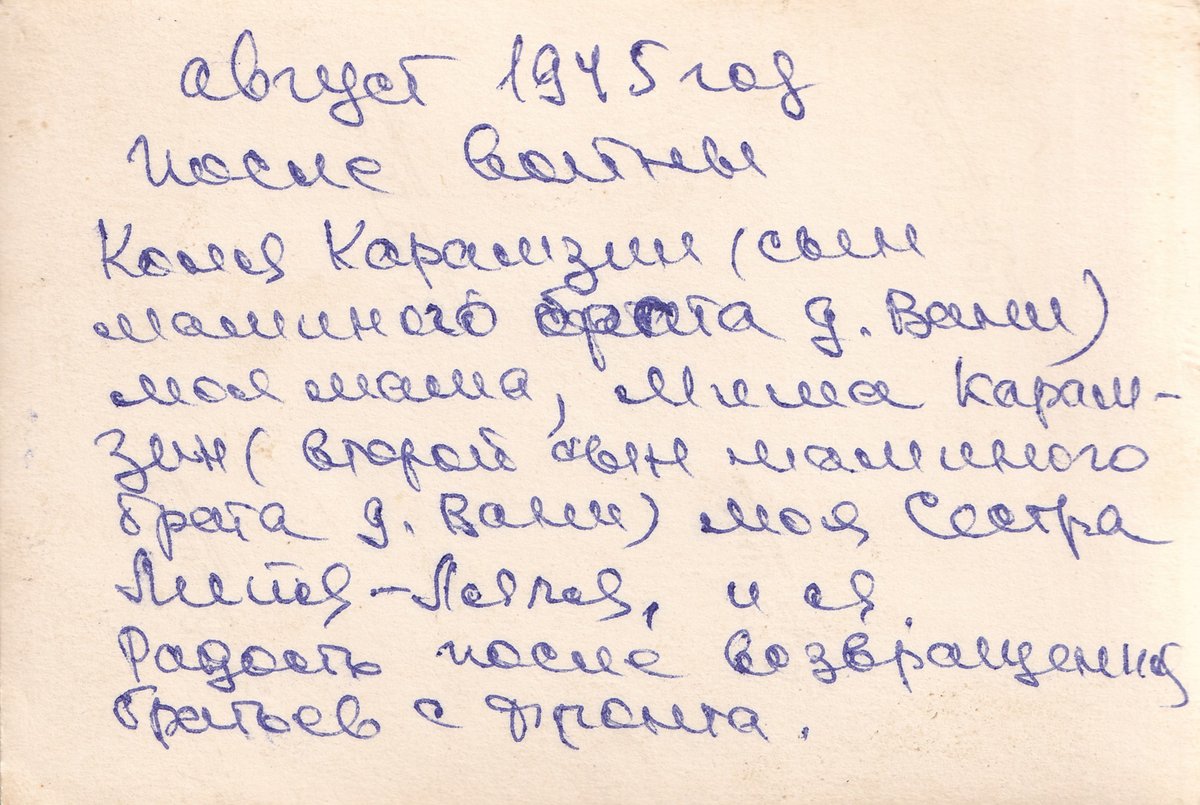 август 1945 год
После войны
Коля Карамзин (сын
маминого брата д. Вани)
моя мама, Миша Карам-
зин (второй сын маминого
брата д. Вани) моя Сестра
и я
Радость после возвращения
братьев с фронта.